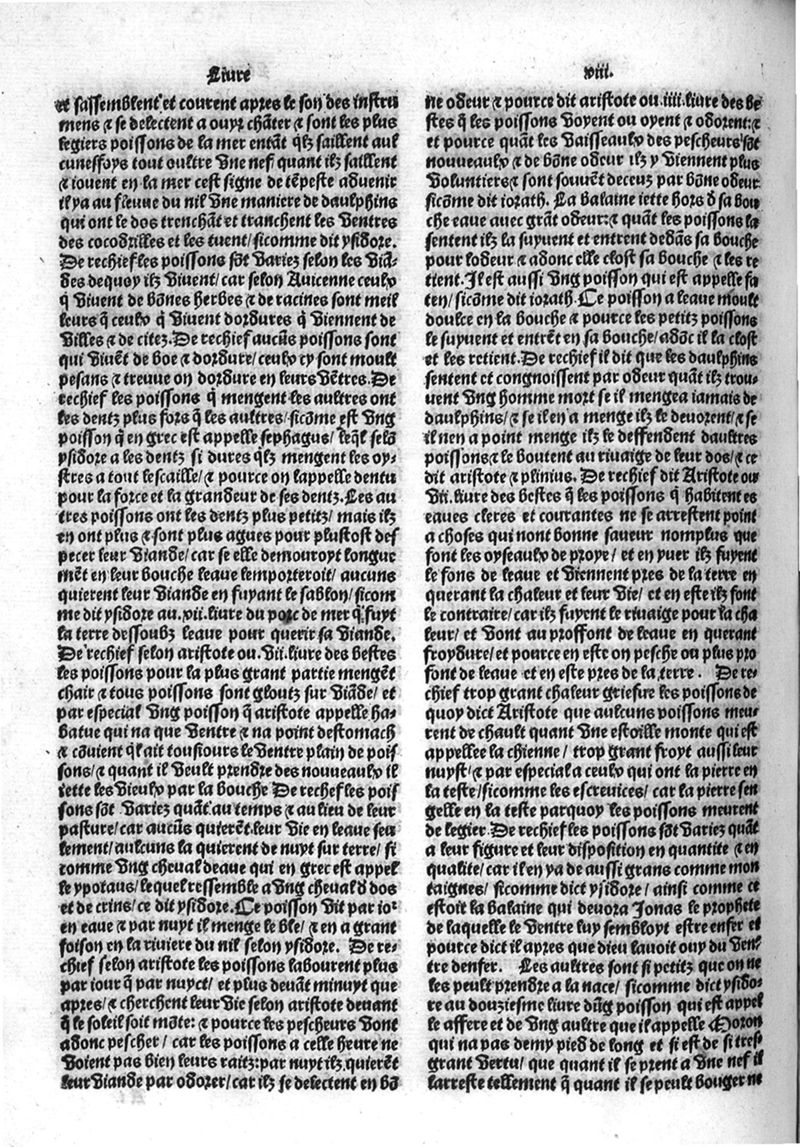 Liure
viii.
et sassemblent et courent apres le son des instru
mens ⁊ se delectent a ouyr chãter ⁊ sont les plus
legiers poissons de la mer entãt qlz saillent aul
cuneffoys tout oultre vne nef quant ilz saillent
⁊ iouent en la mer cest signe de tẽpeste aduenir
il ya au fleuue du nil vne maniere de daulphins
qui ont le dos trenchãt et tranchent les ventres
des cocodrilles et les tuent/sicomme dit ysidore.
De rechief les poissons sõt variez selon les viã-
des dequoy ilz viuent/ car selon Auicenne ceulx
q̃ viuent de bõnes herbes ⁊ de racines sont meil
leurs q̃ ceulx q̃ viuent dordures q̃ viennent de
villes ⁊ de citez. De rechief aucũs poissons sont
qui viuẽt de boe ⁊ dordure/ ceulx cy sont moult
pesans ⁊ treuue on dordure en leurs vẽtres. De
rechief les poissons q̃ mengent les aultres ont
les dentz plus fors q̃ les aultres/ sicõme est vng
poisson q̃ en grec est appelle sephagus/ leq̃l selõ
ysidore a les dentz si dures qlz mengent les oy-
stres a tout lescaille/ ⁊ pource on lappelle dentu
pour la force et la grandeur de ses dentz. Les au
tres poissons ont les dentz plus petitz/ mais ilz
en ont plus ⁊ sont plus agues pour plustost des
pecer leur viande/ car se elle demouroyt longue
mẽt en leur bouche leaue lemporteroit/ aucuns
quierent leur viande en fuyant le sablon/ sicom
me dit ysidore au .xii. liure du porc de mer q̃ fuyt
la terre dessoubz leaue pour querir sa viande.
De rechief selon aristote ou .vii. liure des bestes
les poissons pour la plus grant partie mengẽt
chair ⁊ tous poissons sont gloutz sur viãde/ et
par especial vng poisson q̃ aristote appelle ha-
batue qui na que ventre ⁊ na point destomach
⁊ cõuient ql ait tousiours le ventre plain de pois
sons/ ⁊ quant il veult prendre des nouueaulx il
iette les vieulx par la bouche De rechef les pois
sons sõt variez quãt au temps ⁊ au lieu de leur
pasture/ car aucũs quierẽt leur vie en leaue seu
lement/ aulcuns la quierent de nuyt sur terre/ si
comme vng cheual deaue qui en grec est appel
le ypotaus/ lequel ressemble a vng cheual d dos
et de crins/ ce dit ysidore. Ce poisson vit par ior
en eaue ⁊ par nuyt il menge le ble/ ⁊ en a grant
foison en la riuiere du nil selon ysidore. De re-
chief selon aristote les poissons labourent plus
par iour q̃ par nuyct/ et plus deuãt minuyt que
apres/ ⁊ cherchent leur vie selon aristote deuant
q̃ le soleil soit mõte: ⁊ pource les pescheurs vont
adonc pescher/ car les poissons a celle heure ne
voient pas bien leurs raitz: par nuyt ilz quierẽt
leur viande par odorer/ car ilz se delectent en bõ
ne odeur ⁊ pource dit aristote ou .iiii. liure des be
stes q̃ les poissons voyent ou oyent ⁊ odorent: ⁊
et pource quãt les vaisseaulx des pescheurs sõt
nouueaulx ⁊ de bõne odeur ilz y viennent plus
voluntiers ⁊ sont souuẽt deceuz par bõne odeur
sicõme dit iorath. La balaine iette hors d sa bou
che eaue auec grãt odeur: ⁊ quãt les poissons la
sentent ilz la suyuent et entrent dedãs sa bouche
pour lodeur ⁊ adonc elle clost sa bouche ⁊ les re
tient. Il est aussi vng poisson qui est appelle fa
ten/ sicõme dit iorath. Ce poisson a leaue moult
doulce en la bouche ⁊ pource les petitz poissons
le suyuent et entrẽt en sa bouche/ adõc il la clost
et les retient. De rechief il dit que les daulphins
sentent et congnoissent par odeur quãt ilz trou-
uent vng homme mort se il mengea iamais de
daulphins/ ⁊ se il en a menge ilz le deuorent/ ⁊ se
il nen a point menge ilz le deffendent daultres
poissons ⁊ le boutent au riuaige de leur dos/ ⁊ ce
dit aristote ⁊ plinius. De rechief dit Aristote ou
vii. liure des bestes q̃ les poissons q̃ habitent es
eaues cleres et courantes ne se arrestent point
a choses qui nont bonne saueur nomplus que
font les oyseaulx de proye/ et en yuer ilz fuyent
le fons de leaue et viennent pres de la terre en
querant la chaleur et leur vie/ et en este ilz font
le contraire/ car ilz fuyent le riuaige pour la cha
leur/ et vont au proffont de leaue en querant
froydure/ et pource en este on pesche ou plus pro
font de leaue et en este pres de la terre. De re-
chief trop grant chaleur griefue les poissons de
quoy dict Aristote que aulcuns poissons meu-
rent de chault quant vne estoille monte qui est
appellee la chienne/ trop grant froyt aussi leur
nuyst/ ⁊ par especial a ceulx qui ont la pierre en
la teste/ sicomme les escreuices/ car la pierre sen
gelle en la teste parquoy les poissons meurent
de legier. De rechief les poissons sõt variez quãt
a leur figure et leur disposition en quantite ⁊ en
qualite/ car il en ya de aussi grans comme mon
taignes/ sicomme dict ysidore/ ainsi comme ce
estoit la balaine qui deuora Jonas le prophete
de laquelle le ventre luy sembloyt estre enfer et
pource dict il apres que dieu lauoit ouy du ven-
tre denfer. Les aultres sont si petitz que on ne
les peult prendre a la nace/ sicomme dict ysido-
re au douziesme liure dũg poisson qui est appel
le affere et de vng aultre que il appelle Moron
qui na pas demy pied de long et si est de si tres-
grant vertu/ que quant il se prent a vne nef il
larreste tellement q̃ quant il se peult bouger ne